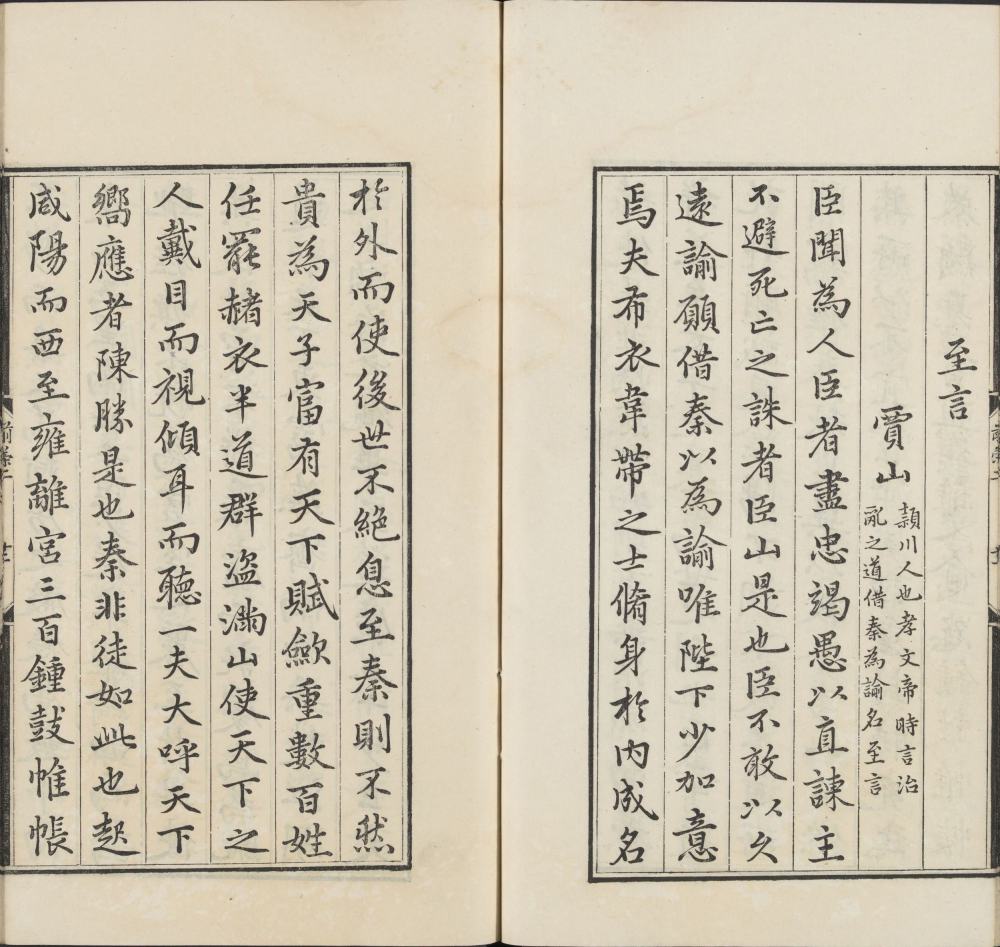 至言
賈山
潁川人也孝文帝時言治
亂之道借秦為諭名至言
臣聞為人臣者盡忠竭愚以直諫主
不避死亡之誅者臣山是也臣不敢以久
遠諭願借秦以為諭唯陛下少加意
焉夫布衣韋帶之士脩身於內成名
於外而使後世不絕息至秦則不然
貴為天子富有天下賦歛重數百姓
任罷赭衣半道群盜滿山使天下之
人戴目而視傾耳而聽一夫大呼天下
嚮應者陳勝是也秦非徒如此也起
咸陽而西至雍離宮三百鍾鼓帷帳